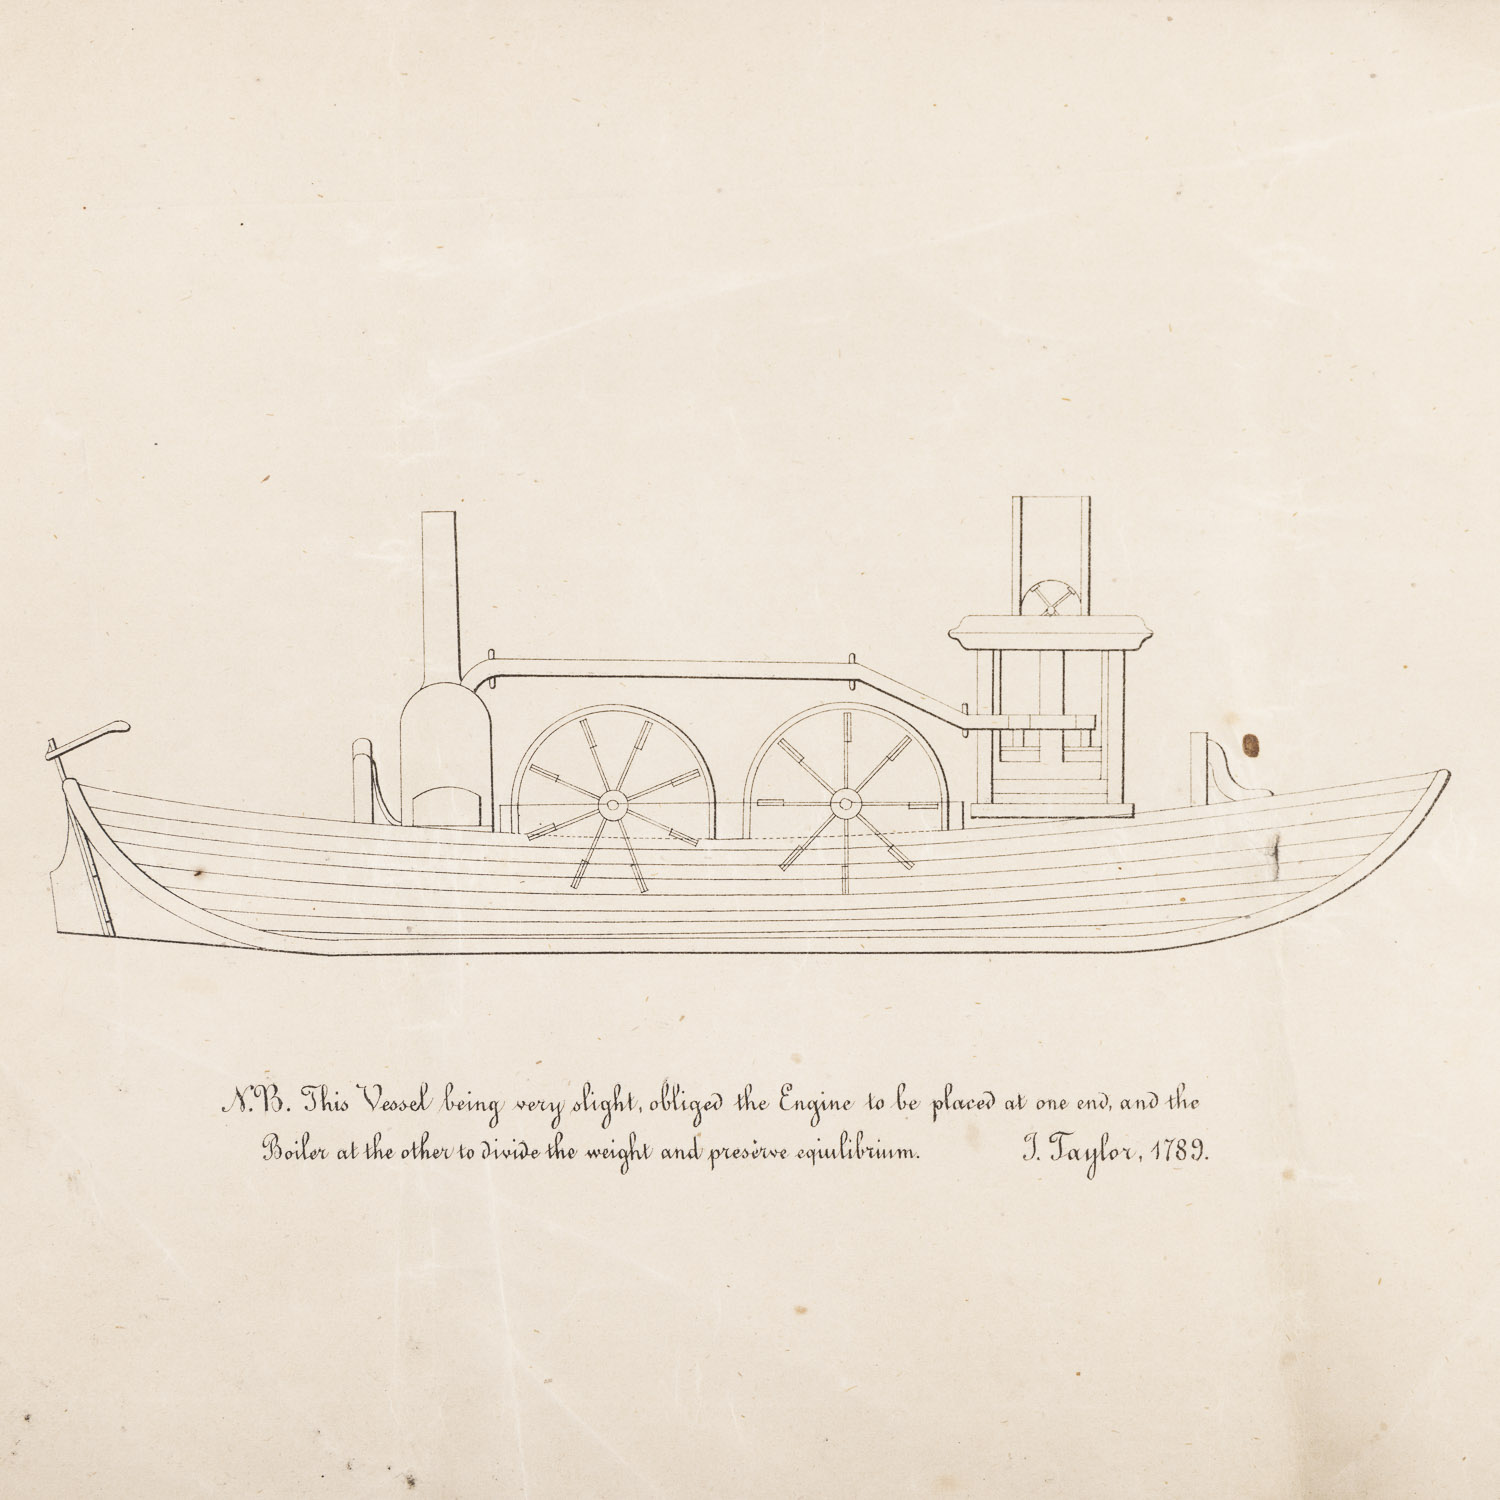 N.B. This Vessel being very slight, obliged the Engine to be placed at one end, and the
Boiler at the other to divide the weight and preserve eqiulibrium. J. Taylor, 1789.